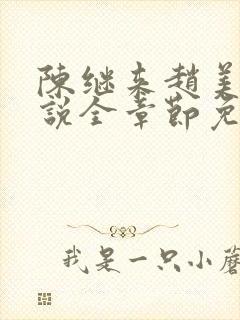 陳继来趙美
說全章節免
我是一只小蘑